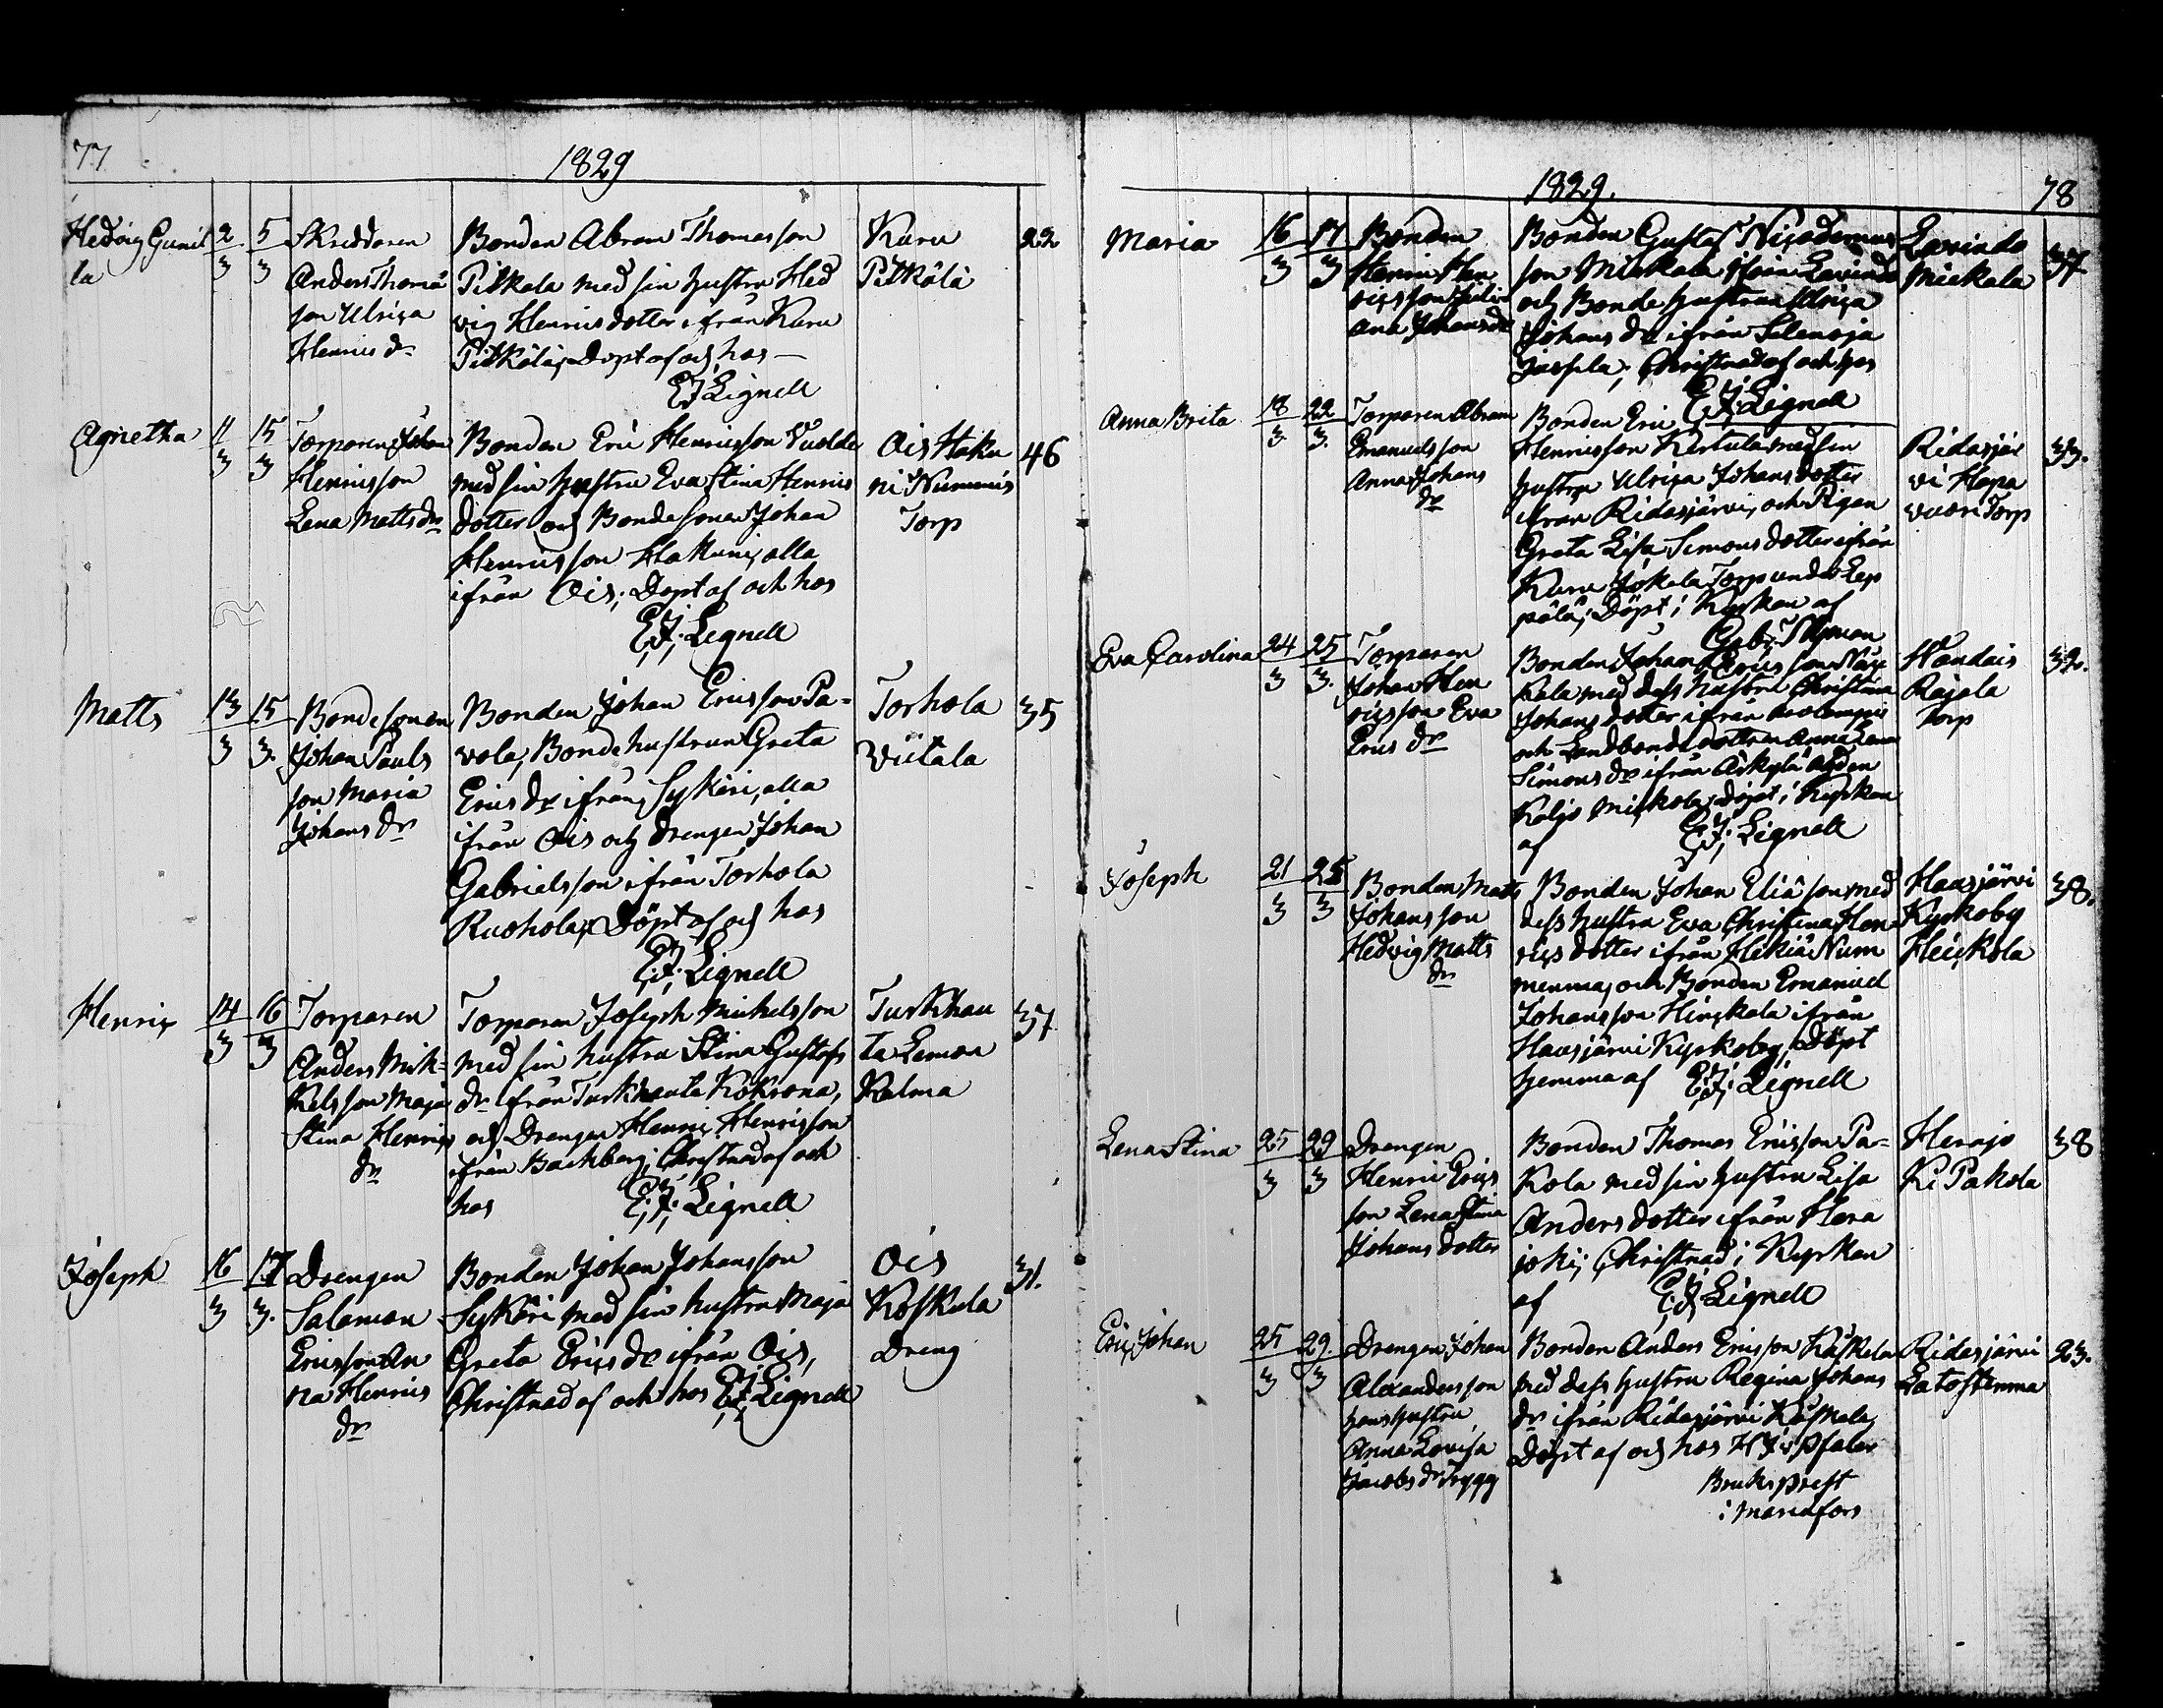 77
1829
Hedvig Gunil
la
2
3
5
3
Skreddaren
Anders Thomæ
son Ulrica
Henrics dr
Bonden Abram Thomasson
Pitkälä med sin hustru Hed
vig Henricsdotter ifrån Karu
Pitkälä, Döpt af och hos —
E. J. Lignell
Karu
Pitkälä
22
Agnetha
11
3
15
3
Torparen Johan
Henricsson
Lena Matts dr
Bonden Eric Henricsson
med sin hustru Eva Stina Henrics
dotter och Bondesonen Johan
Henricsson Hakuni, alla
ifrån Ois; Döpt af och hos
E. J. Lignell
Ois Haku
ni Nummis
Torp
46
Matts
13
3
15
3.
Bondesonen
Johan Pauls
son Maria
Johans dr
Bonden Johan Ericsson Pa-
vola, Bondehustrun Greta
Erics dr ifrån Sykäri, alla
ifrån Ois och Drengen Johan
Gabrielsson ifrån Torhola
Ruohola, Döpt af och hos
E. J. Lignell
Torhola
Viitala
35
Henric
14
3
16
3
Torparen
Anders Mik-
kelsson Maja
Stina Henrics
dr
Torparen Joseph Michelsson
med sin hustru Stina Gustafs
dr ifrån Turkhauta Kokrona,
och Drengen Henric Henricsson
ifrån Backberg; Christnad af och
hos E. J. Lignell
Turkhau
ta Lemon
Kalma
37
Joseph
16
3
17
3.
Drengen
Salomon
Ericsson An
na Henrics
dr
Bonden Johan Johansson
Sykäri med sin hustru Maja
Greta Erics dr ifrån Ois,
Christnad af och hos E. J. Lignell
Ois
Koskula
Dreng
31.
1829.
78
Maria
16
3
17
3
Bonden
Henric Hen
ricsson Juli
ana Johans dr
Bonden Gustaf Nicodemus
son Mickala ifrån Lavinda
och Bonde hustrun Ulrica
Johans dr ifrån Selenoja
Jussila; Christnad af och hos
E. J. Lignell
Lavinda
Mickala
37
Anna Brita
18
3.
22
3.
Torparen Abram
Emanuelsson
Anna Johans
dr
Bonden Eric
Henricsson Kertula med sin
hustru Ulrica Johansdotter
ifrån Ridasjärvi, och Pigan
Greta Lisa Simonsdotter ifrån
Karu Jokela Torp under Lep
pälä; Döpt i Kyrkan af
Ridasjär
vi Hapa
vuori Torp
33.
Eva Carolina
24
3
25
3.
Torparen
Johan Hen
ricsson Eva
Erics dr
Bonden Johan Ericsson
kala med dess hustru Christina
Johansdotter ifrån
och Landbondedottren Anna Lena
Simons dr ifrån
Koljo Mickola; döpt i Kyrkan
af E. J. Lignell
Handais
Rajala
Torp
32.
Joseph
21
3
25
3
Bonden Matts
Johansson
Hedvig Matts
dr
Bonden Johan Eliæson med
dess hustru Eva Christina Hen
ricsdotter ifrån Hikiä Num
menmaa, och Bonden Emanuel
Johansson Hinckala ifrån
Hausjärvi Kyrkoby, Döpt
hemma af E. J. Lignell
Hausjärvi
Kyrkoby
Heickola
38.
Lena Stina
25
3
29
3
Drengen
Henric Erics
son Lena Stina
Johansdotter
Bonden Thomas Ericsson Pa-
kola med sin hustru Lisa
Andersdotter ifrån Hera
joki; Christnad i Kyrkan
af E. J. Lignell
Herajo
ki Pakola
38
Eric Johan
25
3
29.
3
Drengen Johan
Alexandersson
hans hustru
Anna Lovisa
Jacobs dr Trygg
Bonden Anders Ericsson Käskelä
med dess hustru Regina Johans
dr ifrån Ridasjärvi Käskälä,
Döpt af och hos H. J. v. Pfaler
Bruks prest
i Mariafors
Ridasjärvi
Latostenma
23.